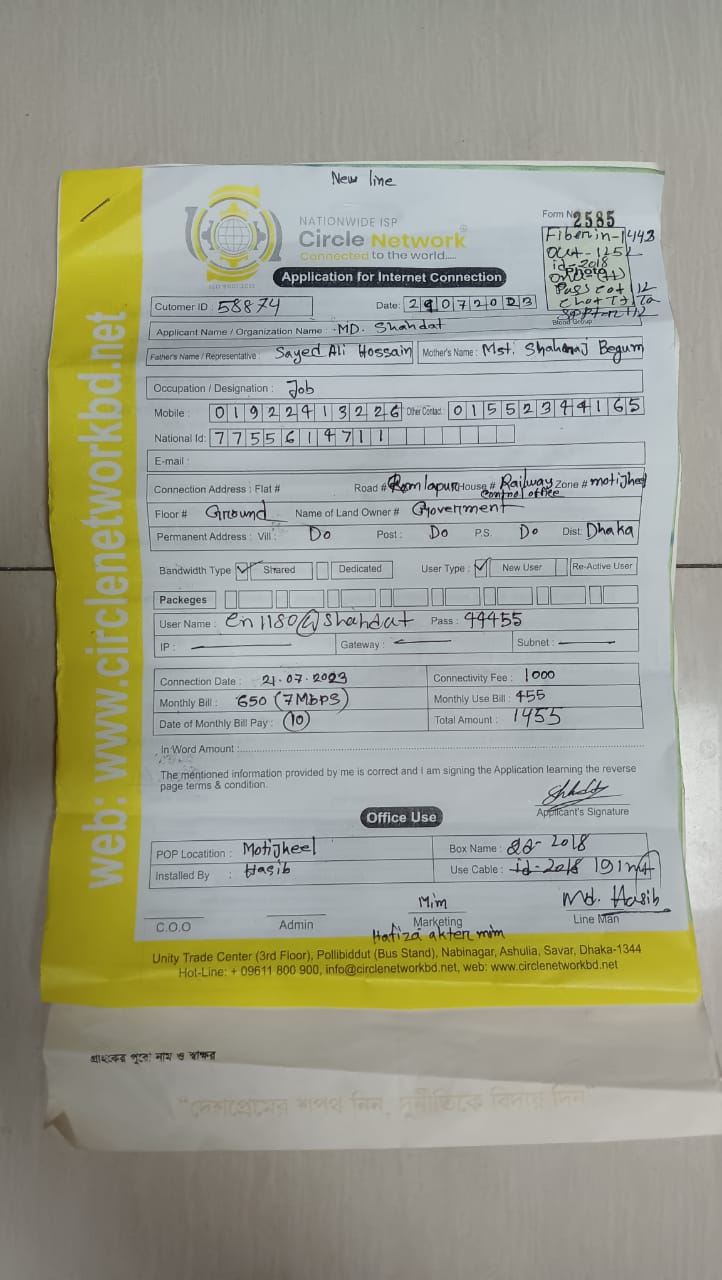 New line
NATIONWIDE ISP
Circle Network
Connected to the world....
ISO 9001:2015
Form No 2585
Fiber in-1443
Out-1252
id-2018
Photo
Blood Group
Application for Internet Connection
Cutomer ID : 58874
Date: 29072023
Applicant Name / Organization Name : MD. Shahdat
Father's Name / Representative : Sayed Ali Hossain Mother's Name : Mst. Shahanaj Begum
Occupation / Designation : Job
Mobile : 01922413226 Other Contact: 01552344165
National Id: 7755614711
E-mail :
Connection Address : Flat # Road # Komlapur House # Railway control office Zone # motijheel
Floor # Ground Name of Land Owner # Goverment
Permanent Address : Vill : Do Post : Do P.S. Do Dist: Dhaka
Bandwidth Type ✓ Shared Dedicated User Type : ✓ New User Re-Active User
Packeges
User Name : en1180@shahdat Pass : 44455
IP : — Gateway : — Subnet : —
Connection Date : 21.07.2023 Connectivity Fee : 1000
Monthly Bill : 650 (7Mbps) Monthly Use Bill : 455
Date of Monthly Bill Pay : 10 Total Amount : 1455
In Word Amount :
The mentioned information provided by me is correct and I am signing the Application learning the reverse
page terms & condition.
Applicant's Signature
Office Use
POP Locatition : Motijheel Box Name : 2018
Installed By : Hasib Use Cable : id-2018 191
Mim Md. Hasib
C.O.O Admin Marketing Line Man
Hafiza akter mim
Unity Trade Center (3rd Floor), Pollibiddut (Bus Stand), Nabinagar, Ashulia, Savar, Dhaka-1344
Hot-Line: + 09611 800 900, info@circlenetworkbd.net, web: www.circlenetworkbd.net
web: www.circlenetworkbd.net
গ্রাহকের পুরো নাম ও স্বাক্ষর
"দেশপ্রেমের শপথ নিন, দুর্নীতিকে বিদায় দিন"